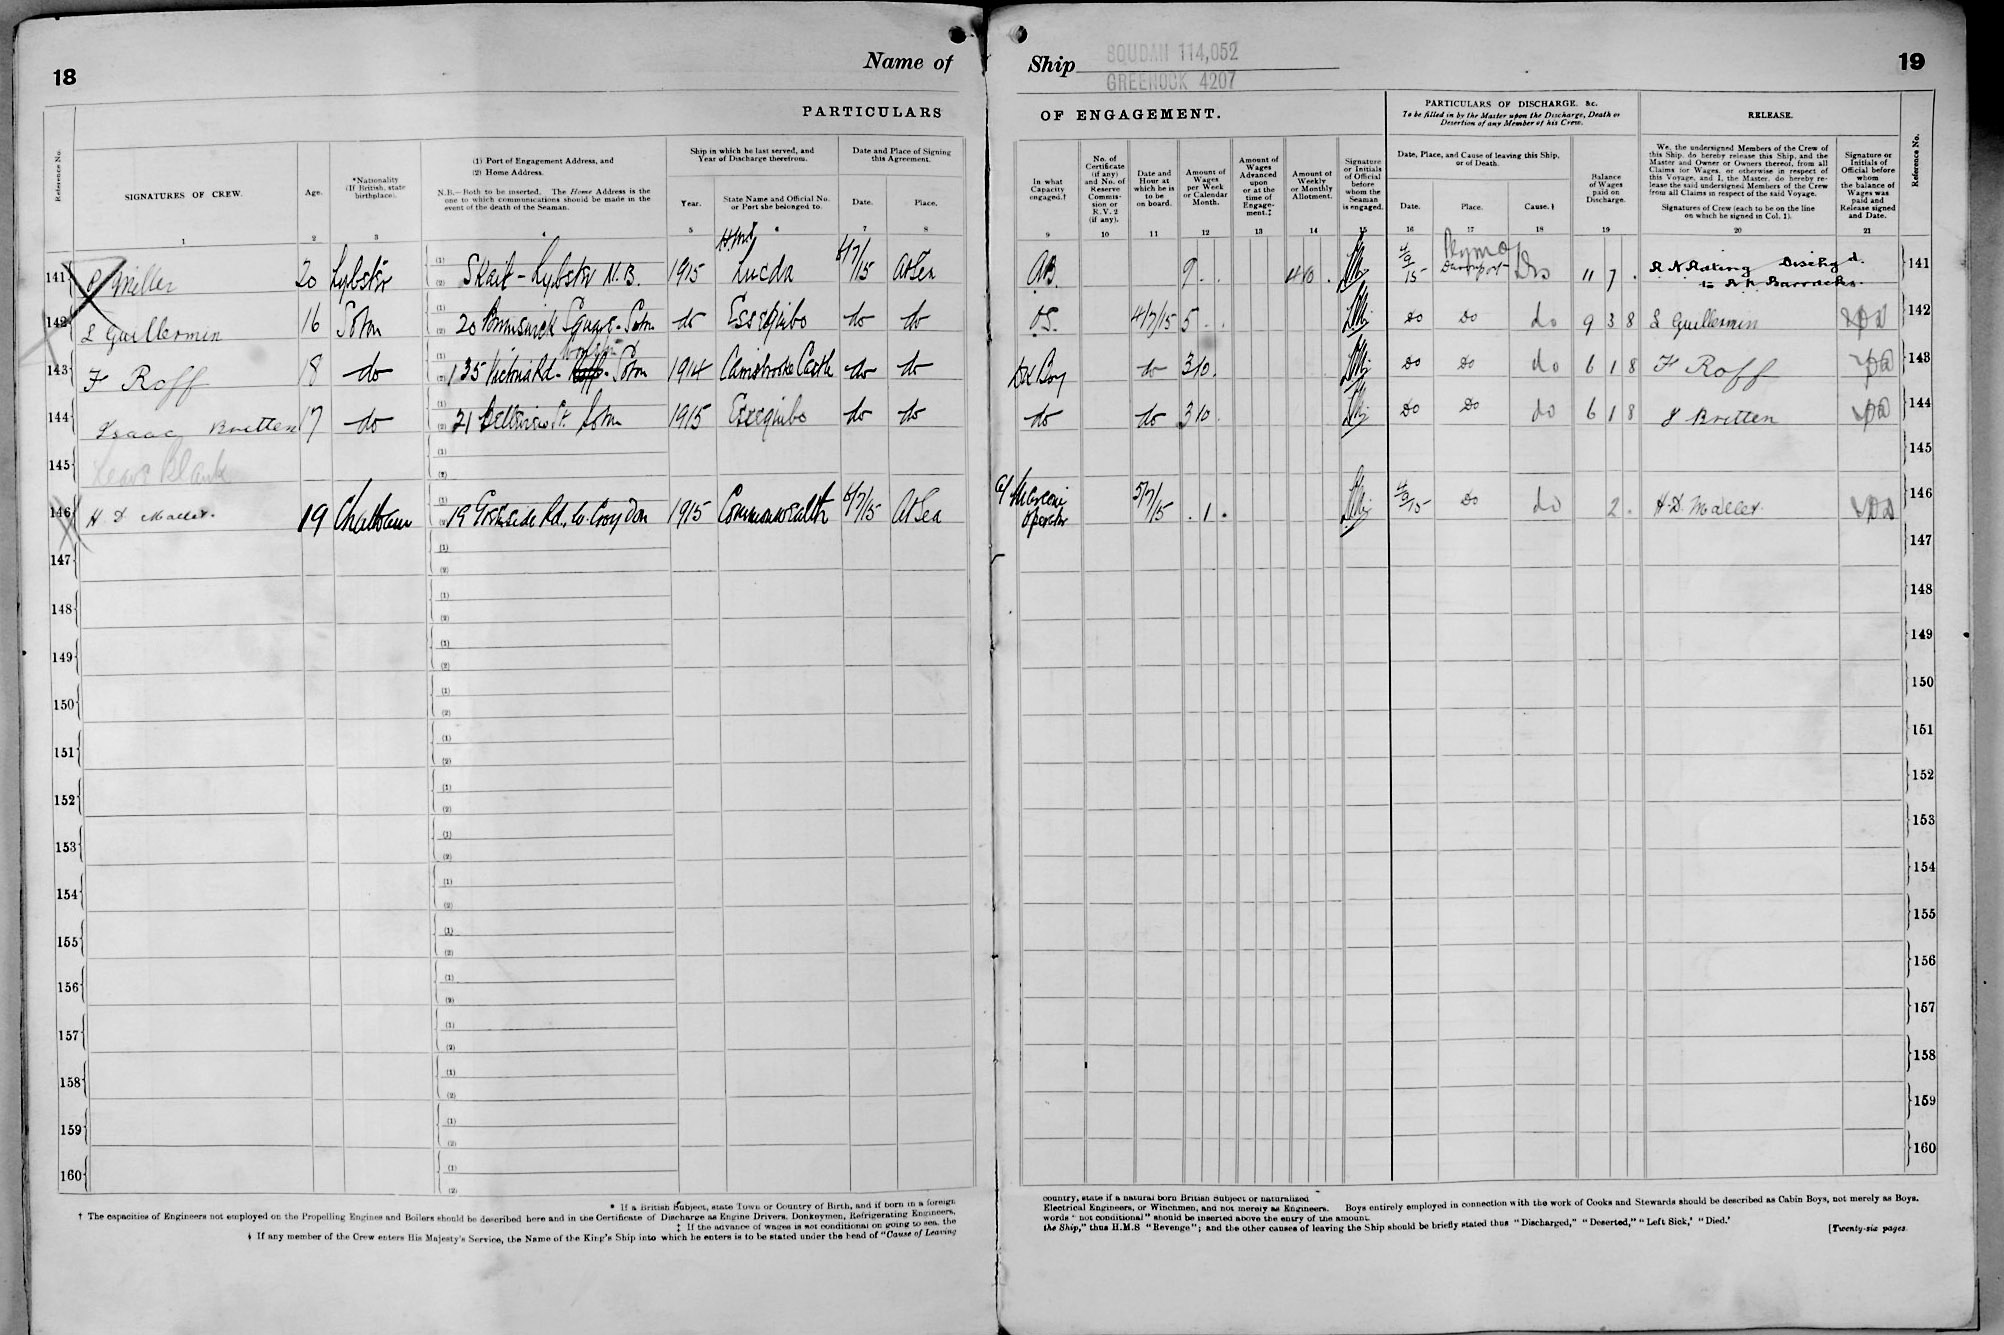 18
Name of
Ship
SOUDAN 114,052
GREENOCK 4207
19
PARTICULARS
OF ENGAGEMENT.
PARTICULARS OF DISCHARGE, &c.
To be filled in by the Master upon the Discharge, Death or Desertion of any Member of his Crew.
RELEASE.
Reference No.
SIGNATURES OF CREW.
Age.
*Nationality (If British, state birthplace).
(1) Port of Engagement Address, and
(2) Home Address.
N.B.—Both to be inserted. The Home Address is the one to which communications should be made in the event of the death of the Seaman.
Ship in which he last served, and Year of Discharge therefrom.
Year.
State Name and Official No. or Port she belonged to.
Date and Place of Signing this Agreement.
Date.
Place.
In what Capacity engaged.†
No. of Certificate (if any) and No. of Reserve Commission or R.V. 2 (if any).
Date and Hour at which he is to be on board.
Amount of Wages per Week or Calendar Month.
Amount of Wages Advanced upon or at the time of Engagement.‡
Amount of Weekly or Monthly Allotment.
Signature or Initials of Official before whom the Seaman is engaged.
Date, Place, and Cause of leaving this Ship, or of Death.
Date.
Place.
Cause.§
Balance of Wages paid on Discharge.
We, the undersigned Members of the Crew of this Ship, do hereby release this Ship, and the Master and Owner or Owners thereof, from all Claims for Wages, or otherwise in respect of this Voyage, and I, the Master, do hereby release the said undersigned Members of the Crew from all Claims in respect of the said Voyage.
Signatures of Crew (each to be on the line on which he signed in Col. 1).
Signature or Initials of Official before whom the balance of Wages was paid and Release signed and Date.
Reference No.
1 2 3 4 5 6 7 8 9 10 11 12 13 14 15 16 17 18 19 20 21
141 Miller 20 Lybster Skail - Lybster N.B. 1915 HMS Lucda 4/7/15 At Sea AB. 9 . . 4 10 . 4/9/15 Plymo Devonport Dis 11 7 . R N Rating Dischgd. to R N Barracks. 141
142 L Guillermin 16 Soton 20 Brunswick Square - Soton do Essequibo do do OS. 4/7/15 5 . . Do Do do 9 3 8 L Guillermin 142
143 F Roff 18 do 135 Victoria Rd - Woolston Soton 1914 Carisbrooke Castle do do Dk Boy do 3 10 . Do Do do 6 1 8 F Roff 143
144 Isaac Britten 17 do 21 Bellevue St. Soton 1915 Essequibo do do do do 3 10 . Do Do do 6 1 8 I Britten 144
145 Leave Blank 145
146 H. D. Mallet. 19 Chatham 19 Rd., W. Croydon 1915 Commonwealth 6/7/15 At Sea Marconi Operator 5/7/15 . 1 . 4/9/15 Do do 2 . H. D. Mallet. 146
147 147
148 148
149 149
150 150
151 151
152 152
153 153
154 154
155 155
156 156
157 157
158 158
159 159
160 160
* If a British Subject, state Town or Country of Birth, and if born in a foreign country, state if a natural born British Subject or naturalized
† The capacities of Engineers not employed on the Propelling Engines and Boilers should be described here and in the Certificate of Discharge as Engine Drivers, Donkeymen, Refrigerating Engineers, Electrical Engineers, or Winchmen, and not merely as Engineers. Boys entirely employed in connection with the work of Cooks and Stewards should be described as Cabin Boys, not merely as Boys.
‡ If the advance of wages is not conditional on going to sea, the words "not conditional" should be inserted above the entry of the amount.
§ If any member of the Crew enters His Majesty's Service, the Name of the King's Ship into which he enters is to be stated under the head of "Cause of Leaving the Ship," thus H.M.S "Revenge"; and the other causes of leaving the Ship should be briefly stated thus "Discharged," "Deserted," "Left Sick," "Died."
[Twenty-six pages.